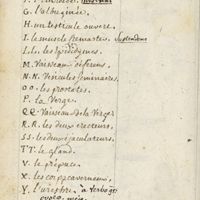 G. l'albuginée.
H. un testicule ouvert.
I. le muscle Cremaster
L.L. les Epididymes.
M. Vaisseau déférens.
N.N. Vesicules seminaires.
OO. les prostates.
P. la Verge.
QQ. Vaisseau de la Verge
R.R. les deux erecteurs.
SS. les deux jaculateurs.
TT. le gland.
V. le prepuce.
X. les corps caverneux.
Y. l'urethre.